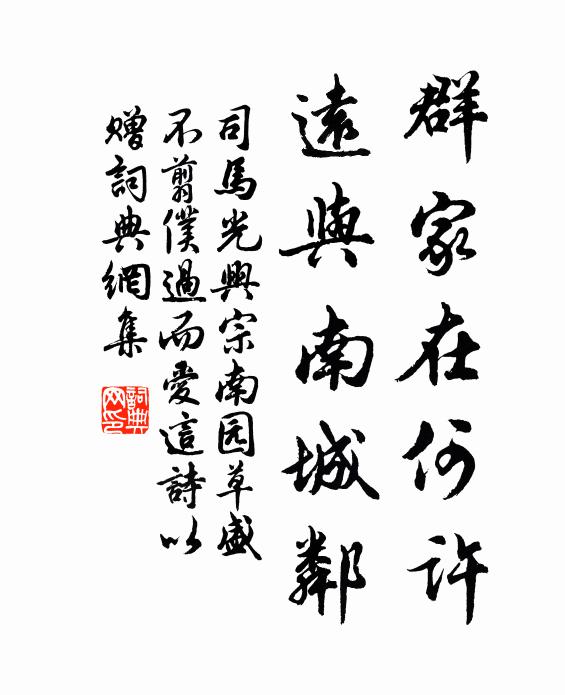 群家在何許
遠與南城鄰
司馬光興宗南园草盛
不翦僕過而愛這詩以
贈詞典網集
詞典
网印